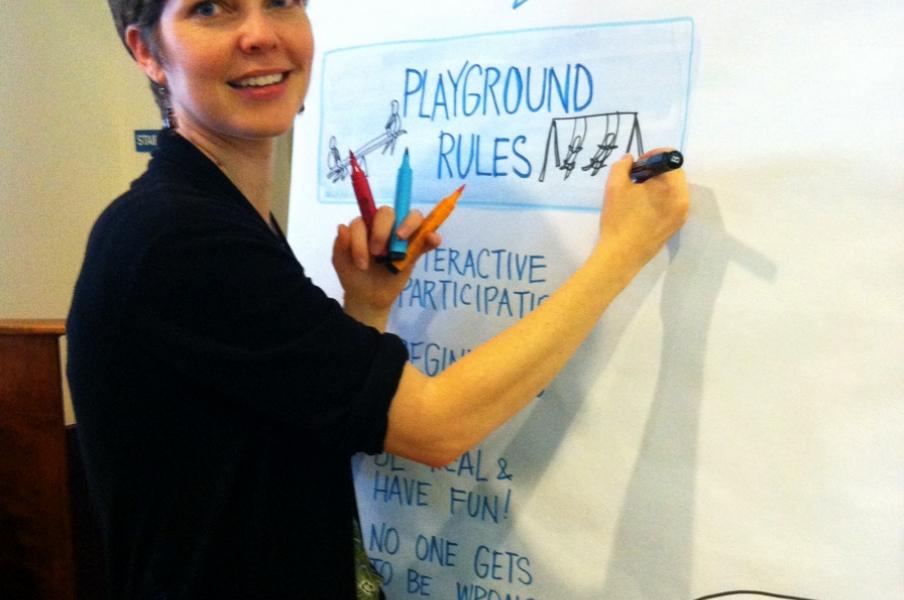 STAI
PLAYGROUND
RULES
TERACTIVE
PARTICIPATIO
EGIN
& 
HAVE FUN!
NO ONE GETS
TO BE WRONG